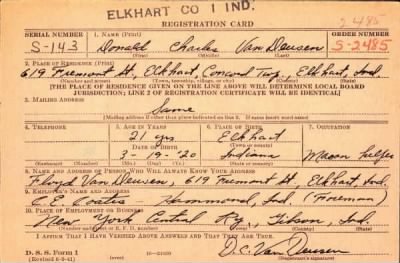 ELKHART CO 1 IND.
2485
REGISTRATION CARD
SERIAL NUMBER 1. NAME (Print) ORDER NUMBER
S-143 Donald Charles Van Deusen S-2485
(First) (Middle) (Last)
2. PLACE OF RESIDENCE (Print)
619 Fremont St, Elkhart, Concord Twp, Elkhart, Ind.
(Number and street) (Town, township, village, or city) (County) (State)
[THE PLACE OF RESIDENCE GIVEN ON THE LINE ABOVE WILL DETERMINE LOCAL BOARD
JURISDICTION; LINE 2 OF REGISTRATION CERTIFICATE WILL BE IDENTICAL]
3. MAILING ADDRESS
Same
[Mailing address if other than place indicated on line 2. If same insert word same]
4. TELEPHONE 5. AGE IN YEARS 6. PLACE OF BIRTH 7. OCCUPATION
21 yrs Elkhart
DATE OF BIRTH (Town or county)
3-19-20 Indiana Mason Helper
(Exchange) (Number) (Mo.) (Day) (Yr.) (State or country)
8. NAME AND ADDRESS OF PERSON WHO WILL ALWAYS KNOW YOUR ADDRESS
Floyd Van Deusen, 619 Fremont St, Elkhart, Ind.
9. EMPLOYER'S NAME AND ADDRESS
C.E. Coates Hammond, Ind (Foreman)
10. PLACE OF EMPLOYMENT OR BUSINESS
New York Central Ry., Gibson, Ind
I AFFIRM THAT I HAVE VERIFIED ABOVE ANSWERS AND THAT THEY ARE TRUE.
D.S.S. Form 1
(Revised 6-9-41) 16-21630
D.C. Van Deusen
(Registrant's signature)